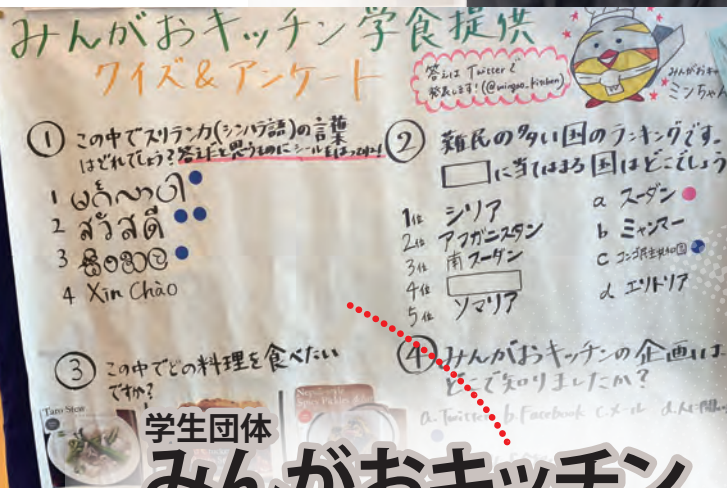 みんがおキッチン学食提供
クイズ&アンケート
答えは Twitterで
発表します!(@mingao_kitchen)
みんがおキッ
ミンちゃん
① この中でスリランカ(シンハラ語)の言葉
はどれでしょう?答えだと思うものにシールをはってね!
1 မင်္ဂလာပါ
2 สวัสดี
3
4 Xin Chào
② 難民の多い国のランキングです。
に当てはまる国はどこでしょう
1位 シリア
2位 アフガニスタン
3位 南スーダン
4位
5位 ソマリア
a スーダン
b ミャンマー
c コンゴ民主共和国
d エリトリア
③ この中でどの料理を食べたい
ですか?
Taro Stew
④ みんがおキッチンの企画は
どこで知りましたか?
a. Twitter b. Facebook c. メール d.
学生団体
みんがおキッチン